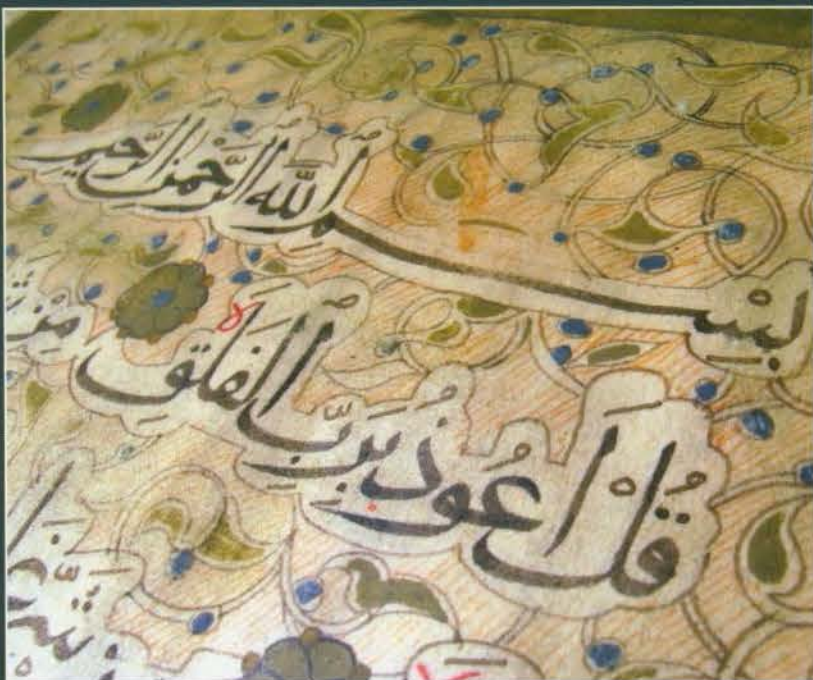 بِسْمِ اللَّهِ الرَّحْمٰنِ الرَّحِيمِ
قُلْ أَعُوذُ بِرَبِّ الْفَلَقِ مِنْ